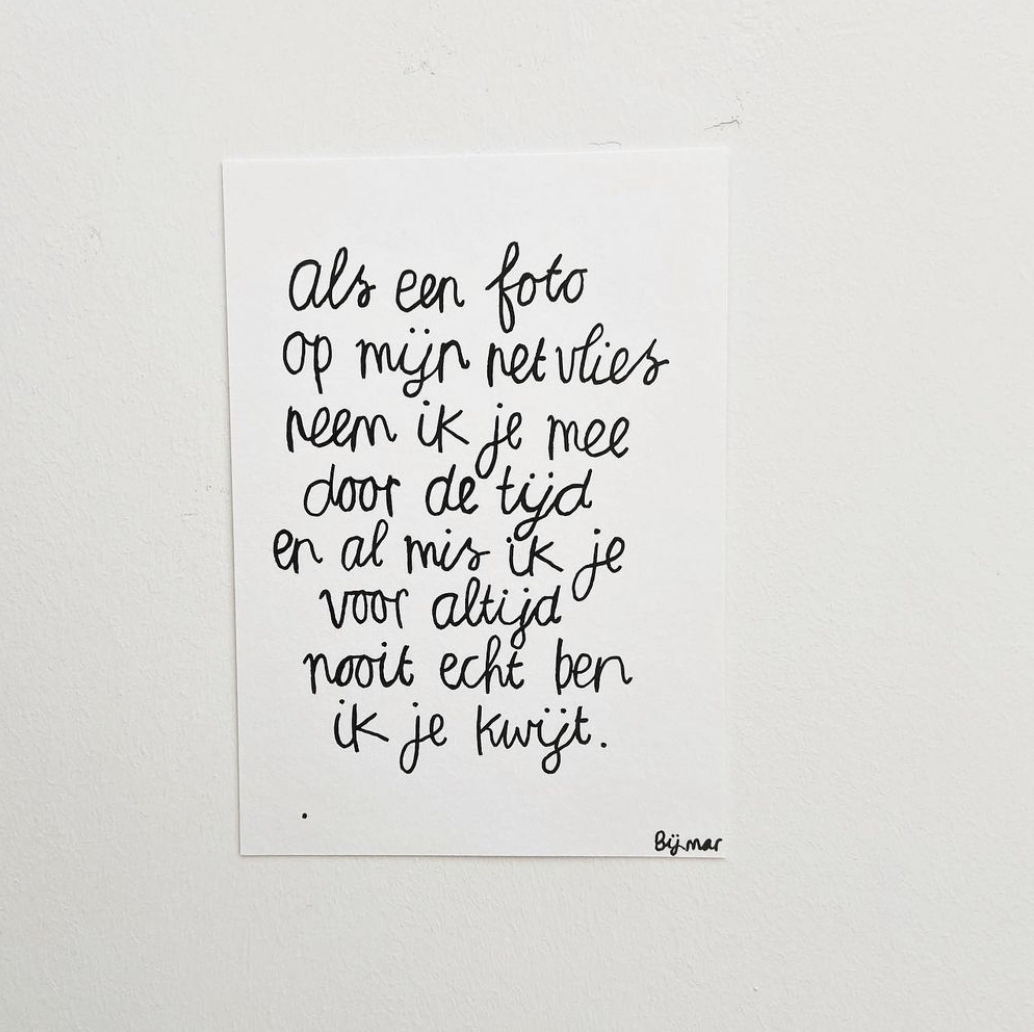 Als een foto
op mijn netvlies
neem ik je mee
door de tijd
en al mis ik je
voor altijd
nooit echt ben
ik je kwijt.
.
Bijmar